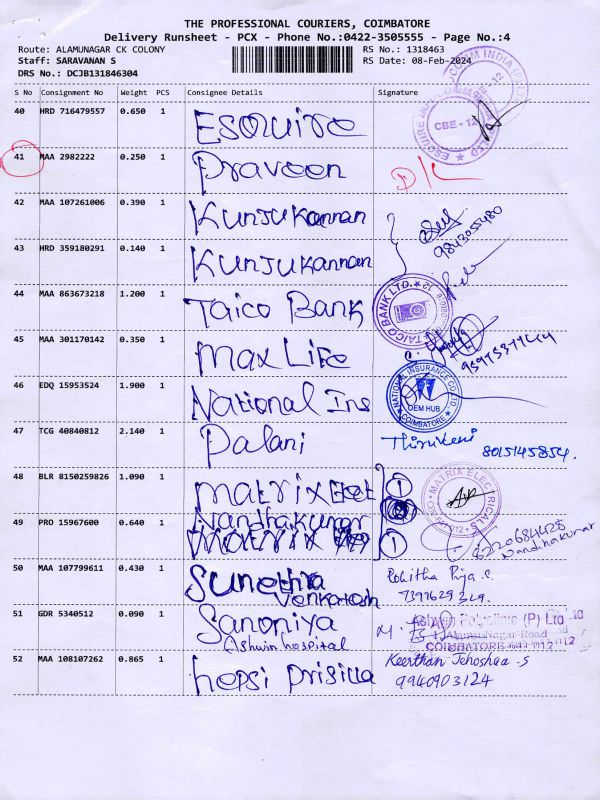 THE PROFESSIONAL COURIERS, COIMBATORE
Delivery Runsheet - PCX - Phone No.:0422-3505555 - Page No.:4
Route: ALAMUNAGAR CK COLONY RS No.: 1318463
Staff: SARAVANAN S RS Date: 08-Feb-2024
DRS No.: DCJB131846304
S No Consignment No Weight PCS Consignee Details Signature
40 HRD 716479557 0.650 1 Esquire
CBE - 12
41 MAA 2982222 0.250 1 Praveen D/L
42 MAA 107261006 0.390 1 Kunjukannan
43 HRD 359180291 0.140 1 Kunjukannan
44 MAA 863673218 1.200 1 Taico Bank
TAICO BANK LTD.
45 MAA 301170142 0.350 1 Max Life
46 EDQ 15953524 1.900 1 National Ins
NATIONAL INSURANCE CO LTD
OEM HUB
COIMBATORE
47 TCG 40840812 2.140 1 Palani 8015145854.
48 BLR 8150259826 1.090 1 Matrix Elect 1
MATRIX ELECTRICALS
49 PRO 15967600 0.640 1 Nandhakumar
Nandhakumar
50 MAA 107799611 0.430 1 Sunethra Venkatesh Rohitha Priya
51 GDR 5340512 0.090 1 Sanoniya
Ashwin hospital
Ashwin Polyclinic (P) Ltd
Alamu Nagar Road
COIMBATORE-641 012
52 MAA 108107262 0.865 1 hepsi prisilla Keerthan Jehoshea .S
9940903124